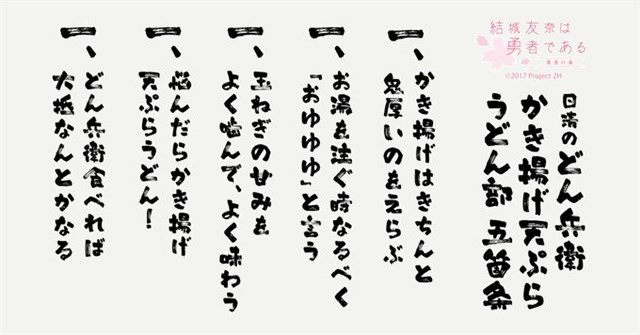 結城友奈は
勇者である
©2017 Project 2H
日清のどん兵衛
かき揚げ天ぷら
うどん部 五箇条
一、
かき揚げはきちんと
鬼厚いのをえらぶ
一、
お湯を注ぐ時なるべく
「おゆゆゆ」と言う
一、
玉ねぎの甘みを
よく噛んで、よく味わう
一、
悩んだらかき揚げ
天ぷらうどん！
一、
どん兵衛食べれば
大抵なんとかなる